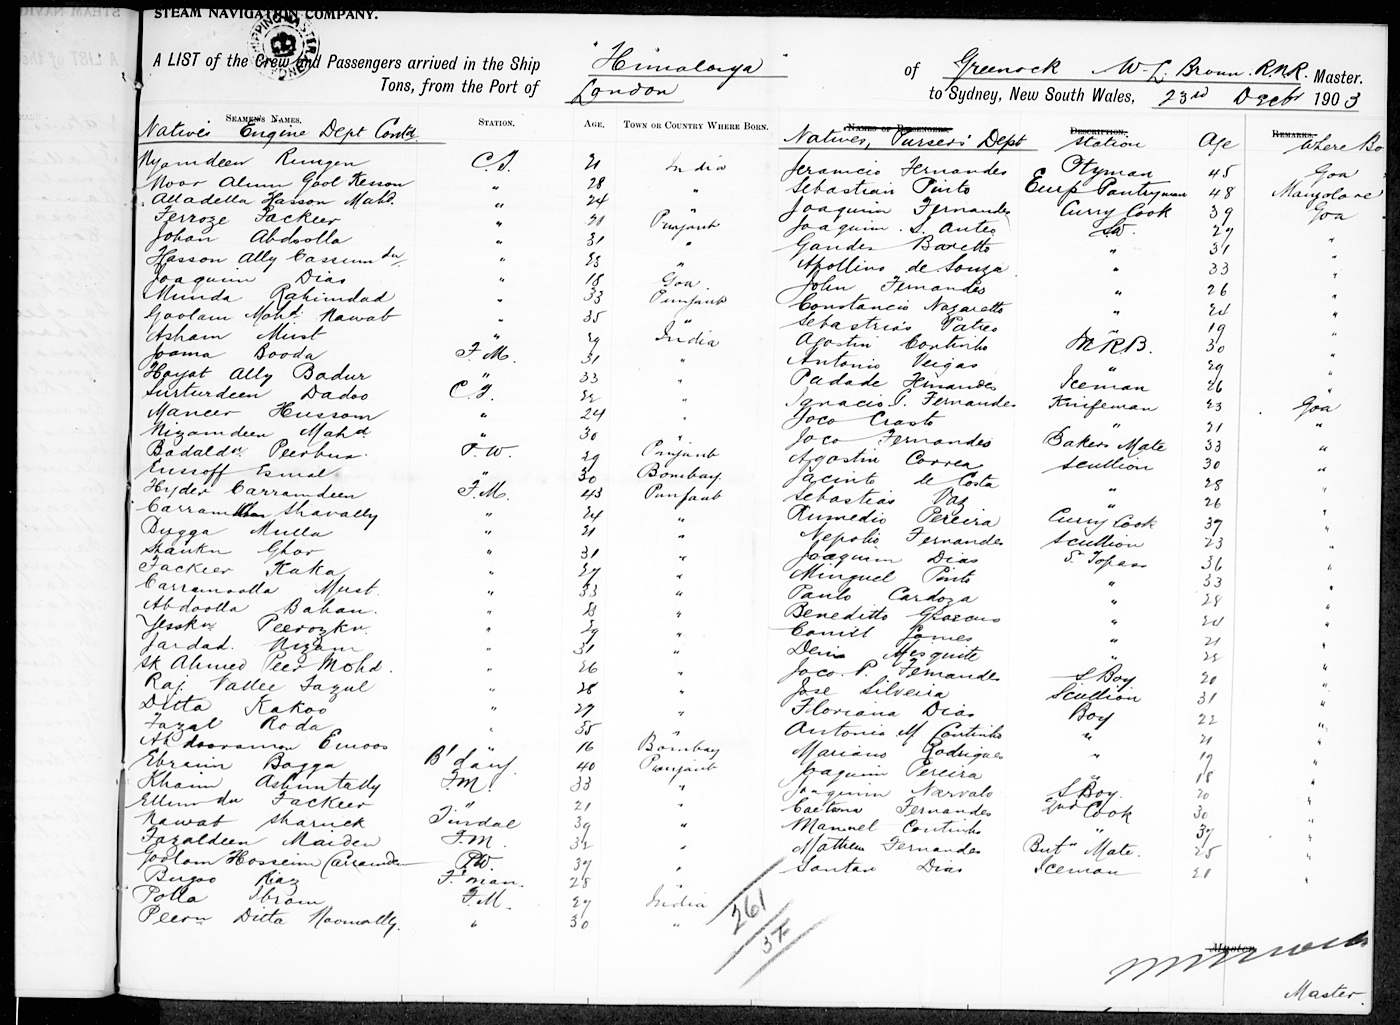 STEAM NAVIGATION COMPANY.
A LIST of the Crew and Passengers arrived in the Ship "Himalaya" of Greenock W. L. Broun. R.N.R. Master.
Tons, from the Port of London to Sydney, New South Wales, 23rd Decbr 1903
SEAMEN'S NAMES. STATION. AGE. TOWN OR COUNTRY WHERE BORN.
Natives Engine Dept Contd
Nyamdeen Rumgen C.T. 21 India
Noor Alum Gool Hesson " 28 "
Alladella Hasson Mahd. " 24 "
Ferroze Fackeer " 21 Punjaub
Johan Abdoolla " 31 "
Hasson Ally Cassum du " 23 "
Joaquim Dias " 18 Goa.
Munda Rahimdad " 33 Punjaub
Goolam Mohd Nawab " 35 "
Asham Must " 29 India
Joama Booda F.M. 31 "
Hoyat Ally Badur " 33 "
Surturdeen Dadoo C.T. 22 "
Maneer Hussom " 24 "
Nizamdeen Mahd " 30 "
Badaldn Peerbux P.W. 29 Punjaub
Eussoff Esmal " 30 Bombay
Hyder Carramdeen F.M. 43 Punjaub
Carram Khan Shavally " 24 "
Bugga Mulla " 21 "
Shaikn Ghor " 31 "
Fackeer Kaka " 27 "
Carramoolla Must. " 33 "
Abdoolla Bahan. " 28 "
Jesskn Peerozkn. " 29 "
Jardad. Nizam " 31 "
Sk Ahmed Peer Mohd. " 26 "
Raj Vallee Fazul " 28 "
Ditta Kakoo " 27 "
Fazal Roda " 35 "
Abdooraman Emoos " 16 Bombay
Ebraim Bagga B'dary 40 Punjaub
Khaim Ashuntally F.M. 33 "
Ellum du Fackeer " 21 "
Nawab Sharuck Tindal 39 "
Fazaldeen Maiden F.M. 32 "
Goolam Hossein Carramdeen P.W. 37 "
Bugoo Riaz F'man. 28 "
Polla Ibram F.M. 27 India
Peern Ditta Noomally. " 30 "
NAMES OF PASSENGERS. DESCRIPTION. REMARKS.
Natives, Purser's Dept Station Age Where Bo
Jeranicio Fernandes Ptyman 45 Goa
Sebastian Pinto Eurp Pantryman 48 Mangolore
Joaquim Fernandes Curry Cook 39 Goa
Joaquim S. Antes Sw. 29 "
Gander Baretto " 31 "
Apollino de Souza " 33 "
John Fernandes " 26 "
Constancio Nazaretto " 24 "
Sebastian Patres " 19 "
Agostin Continho M.R.B. 30 "
Antonio Veigas " 29 "
Padade Fernandes Iceman 26 "
Ignacio J. Fernandes Knifeman 23 Goa
Joco Crasto " 21 "
Joco Fernandes Bakers Mate 33 "
Agostin Correa Scullion 30 "
Jacinto de Costa " 28 "
Sebastian Vaz " 26 "
Rumedio Pereira Curry Cook 37 "
Nepolis Fernandes Scullion 23 "
Joaquim Dias S. Topass 36 "
Minguel Pinto " 33 "
Paulo Cardoza " 28 "
Beneditto Gracius " 24 "
Camill Gomes " 21 "
Denis Mesquite " 22 "
Joco P. Fernandes S Boy 20 "
Jose Silveira Scullion 31 "
Floriana Dias Boy 22 "
Antonio M Continho " 21 "
Mariano Rodrigues " 17 "
Joaquim Pereira " 18 "
Joaquim Narvalo S. Boy. 20 "
Caetana Fernandes 2nd Cook 30 "
Manuel Continho " 37 "
Mathew Fernandes But" Mate. 25 "
Santan Dias Iceman 21 "
261
37
Master
Master.